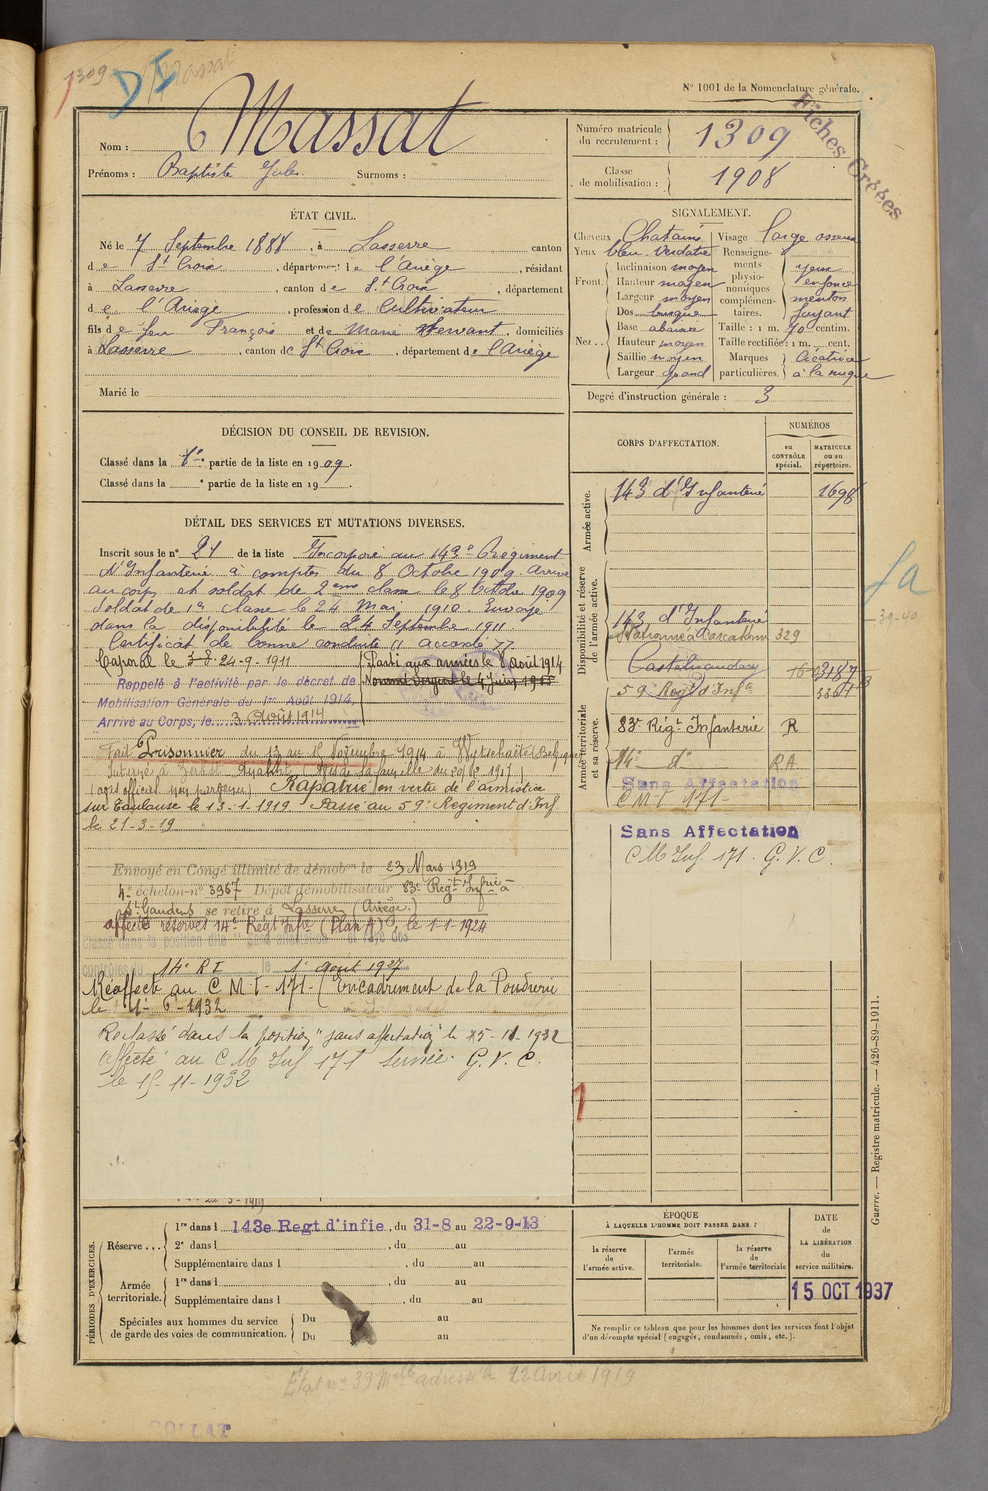 1309
D I
Massat
N° 1001 de la Nomenclature générale.
Fiches Créées
Nom : Massat
Prénoms : Baptiste Jules Surnoms :
Numéro matricule du recrutement : 1309
Classe de mobilisation : 1908
ÉTAT CIVIL.
Né le 7 Septembre 1888, à Lasserre canton
de St Croix, département de l'Ariège, résidant
à Lasserre, canton de St Croix, département
de l'Ariège, profession de Cultivateur
fils de feu François et de Marie Servant, domiciliés
à Lasserre, canton de St Croix, département de l'Ariège
Marié le
SIGNALEMENT.
Cheveux Chatains Visage large osseux
Yeux bleu Verdatre
Front. Inclinaison moyen
Hauteur moyen
Largeur moyen
Nez... Dos busqué
Base abaissée
Hauteur moyen
Saillie moyen
Largeur grand
Renseignements physionomiques complémentaires. yeux enfoncés menton fuyant
Taille : 1 m. 70 centim.
Taille rectifiée : 1 m. cent.
Marques particulières. Cicatrice à la nuque
Degré d'instruction générale : 3
DÉCISION DU CONSEIL DE REVISION.
Classé dans la 1re partie de la liste en 1909.
Classé dans la e partie de la liste en 19 .
DÉTAIL DES SERVICES ET MUTATIONS DIVERSES.
Inscrit sous le n° 21 de la liste Incorporé au 143e Régiment
d'Infanterie à compter du 8 Octobre 1909. Arrivé
au corps et soldat de 2eme classe le 8 Octobre 1909
Soldat de 1re classe le 24 Mai 1910. Envoyé
dans la disponibilité le 24 Septembre 1911.
Certificat de bonne conduite "accordé"
Caporal le 24-9-1911
Parti aux armées le 8 août 1914
Nommé Sergent le 4 Juin 1915
Rappelé à l'activité par le décret de
Mobilisation Générale du 1er Août 1914,
Arrivé au Corps, le 3 Août 1914
Fait Prisonnier du 13 au 15 Novembre 1914 à Wytschaëte Belgique
Interné à Zerbst Anhalt (Avis de la famille du 1917)
(avis officiel non parvenu) Rapatrié en vertu de l'armistice
sur Toulouse le 13.1.1919 Passé au 59e Régiment d'Inf
le 21-3-19
Envoyé en Congé illimité de démobon le 23 Mars 1919
4e échelon n° 3967 Dépôt démobilisateur 83e Regt Infrie à
St Gaudens se retire à Lasserre (Ariège)
affecté réserves 14e Regt Infie (Plan A), le 1-1-1924
Classé dans la position dite "sans affectation" et rayé des
contrôles du 14e RI le 1er Août 1927
Réaffecté au C M I - 171 - (Encadrement de la Poudrerie
le 1-6-1932
Reclassé dans la position "sans affectation" le 15-11-1932
affecté au C M Inf 171 service G.V.C.
le 15-11-1932
CORPS D'AFFECTATION.
NUMÉROS
au CONTRÔLE spécial.
MATRICULE ou au répertoire.
Armée active.
143 d'Infanterie 1698
Disponibilité et réserve de l'armée active.
143 d'Infanterie
329
Castelnaudary 3187
59e Regt d'Infie
Armée territoriale et sa réserve.
83e Régt Infanterie R
14e do RA
Sans Affectation
C M I 171 -
Sans Affectation
C M Inf 171. G.V.C.
39-40
1
Guerre. — Registre matricule. — 426-89-1911.
PÉRIODES D'EXERCICES.
Réserve... 1re dans l 143e Regt d'infie, du 31-8 au 22-9-13
2e dans l , du au
Supplémentaire dans l , du au
Armée territoriale. 1re dans l , du au
Supplémentaire dans l , du au
Spéciales aux hommes du service de garde des voies de communication. Du au
Du au
ÉPOQUE
À LAQUELLE L'HOMME DOIT PASSER DANS :
la réserve de l'armée active.
l'armée territoriale.
la réserve de l'armée territoriale
DATE de LA LIBÉRATION du service militaire.
15 OCT 1937
Ne remplir ce tableau que pour les hommes dont les services font l'objet
d'un décompte spécial (engagés, condamnés, omis, etc.).
Etat n° 39 adressé le 22 Avril 1919
COLLAT